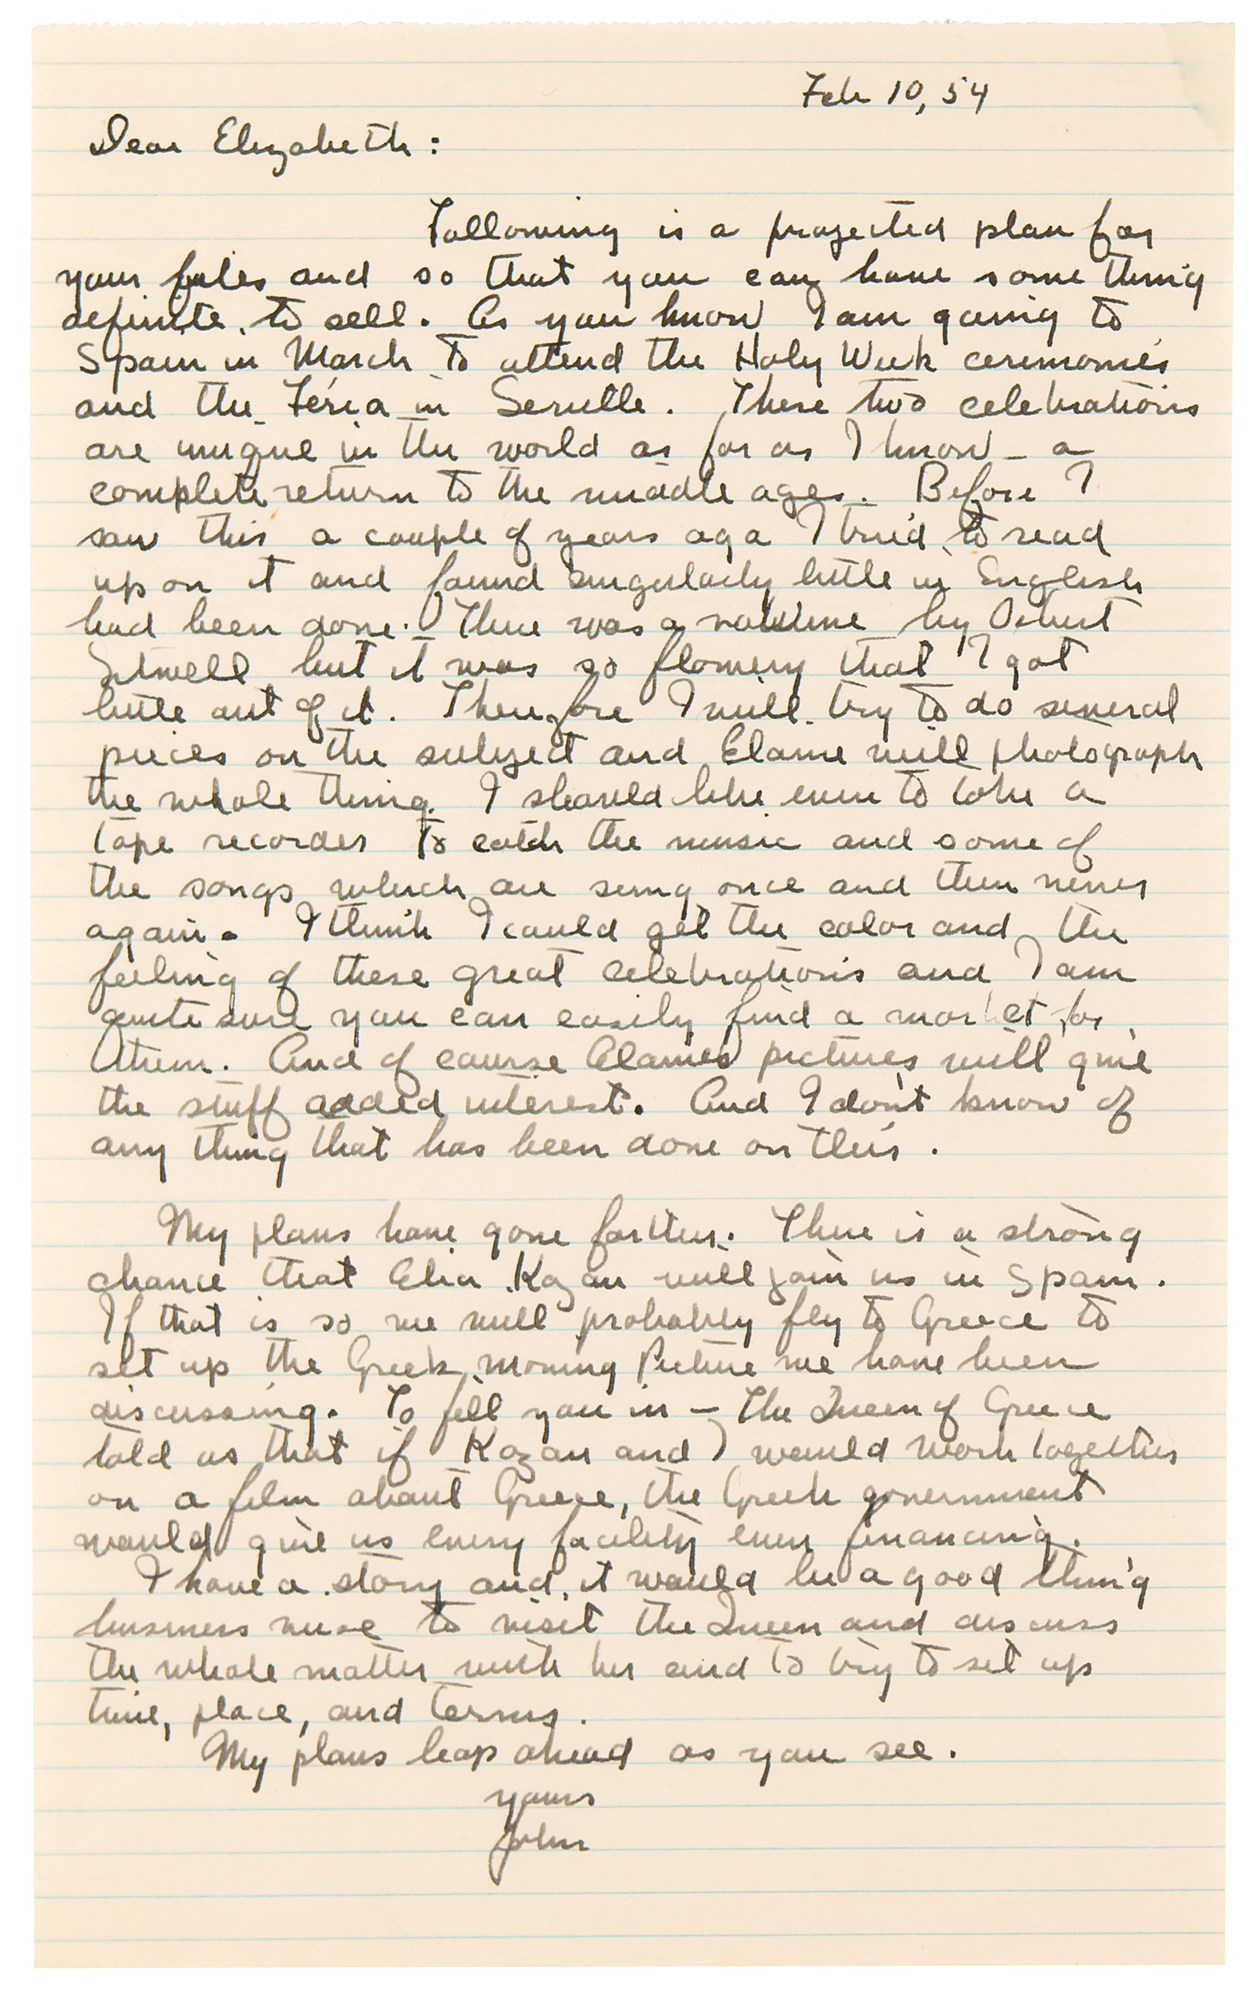 Feb 10, 54
Dear Elizabeth:
Following is a projected plan for
your files and so that you can have some thing
definite to sell. As you know I am going to
Spain in March to attend the Holy Week ceremonies
and the Feria in Seville. These two celebrations
are unique in the world as far as I know - a
complete return to the middle ages. Before I
saw this a couple of years ago I tried to read
up on it and found singularly little in English
had been done. There was a volume by Osbert
Sitwell but it was so flowery that I got
little out of it. Therefore I will try to do several
pieces on the subject and Elaine will photograph
the whole thing. I should like even to take a
tape recorder to catch the music and some of
the songs which are sung once and then never
again. I think I could get the color and the
feeling of these great celebrations and I am
quite sure you can easily find a market for
them. And of course Elaines pictures will give
the stuff added interest. And I don't know of
any thing that has been done on this.
My plans have gone farther. There is a strong
chance that Elia Kazan will join us in Spain.
If that is so we will probably fly to Greece to
set up the Greek Moving Picture we have been
discussing. To fill you in — The Queen of Greece
told us that if Kazan and I would work together
on a film about Greece, the Greek government
would give us every facility even financing.
I have a story and it would be a good thing
business wise to visit the Queen and discuss
the whole matter with her and to try to set up
time, place, and terms.
My plans leap ahead as you see.
yours
John